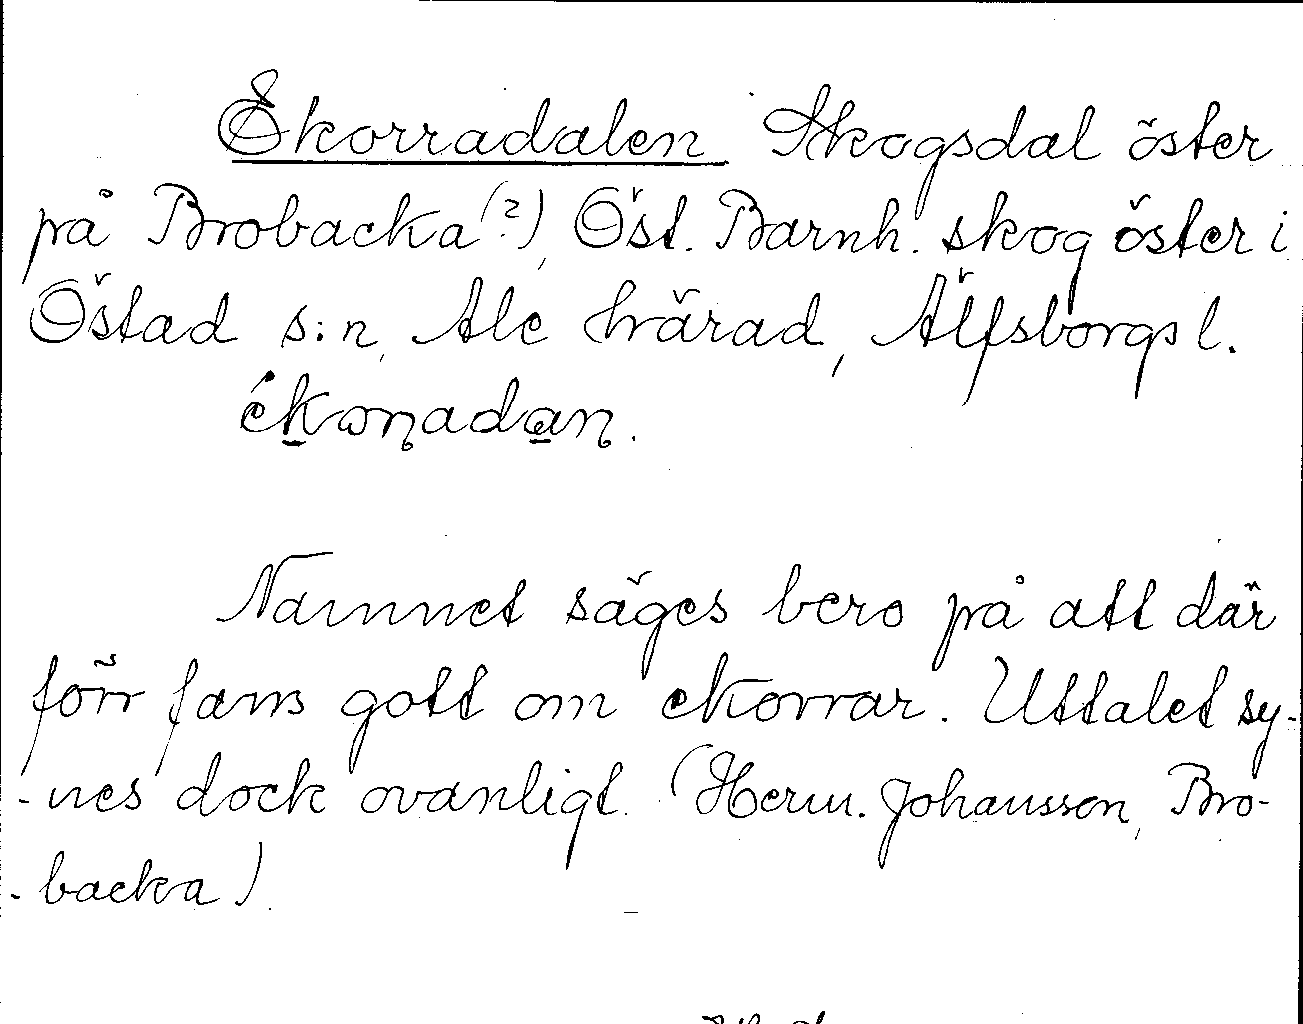 Ekorradalen Skogsdal öster
på Brobacka (?), Öst. Barnh. skog öster i
Östad s:n, Ale härad, Älfsborgs l.
ékɷn̨adan̨.
Namnet säges bero på att där
förr fans gott om ekorrar. Uttalet sy-
-nes dock ovanligt. (Herm. Johansson, Bro-
-backa)